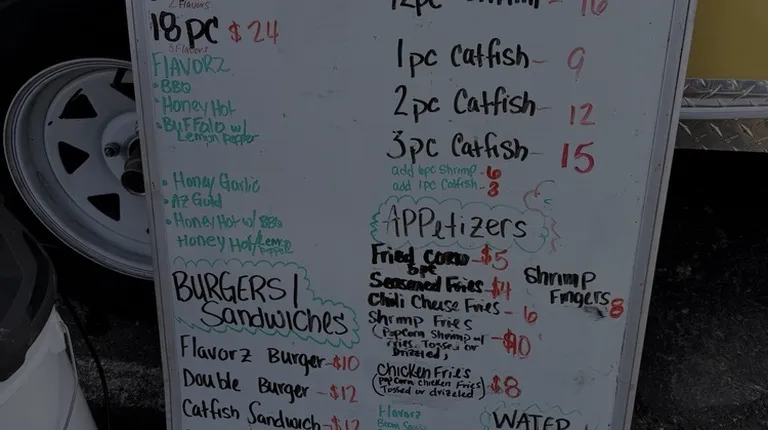 2 Flavors
18pc $24
3 Flavors
FLAVORZ
• BBQ
• Honey Hot
• Buffalo w/
Lemon Pepper
• Honey Garlic
• AZ Gold
• Honey Hot w/ BBQ
Honey Hot/Lemon
BURGERS/
Sandwiches
Flavorz Burger-$10
Double Burger-$12
Catfish Sandwich-$12
12pc Shrimp- 16
1pc Catfish- 9
2pc Catfish- 12
3pc Catfish- 15
add 6pc Shrimp-6
add 1pc Catfish-3
APPetizers
Fried -$5
5pc
Seasoned Fries-$4
Chili Cheese Fries-6
Shrimp Fries -$10
(Popcorn Shrimp w/
fries, Tossed or
Drizzled)
Chicken Fries -$8
(popcorn chicken Fries)
Tossed or drizzled)
Flavorz
Shrimp
Fingers 8
WATER